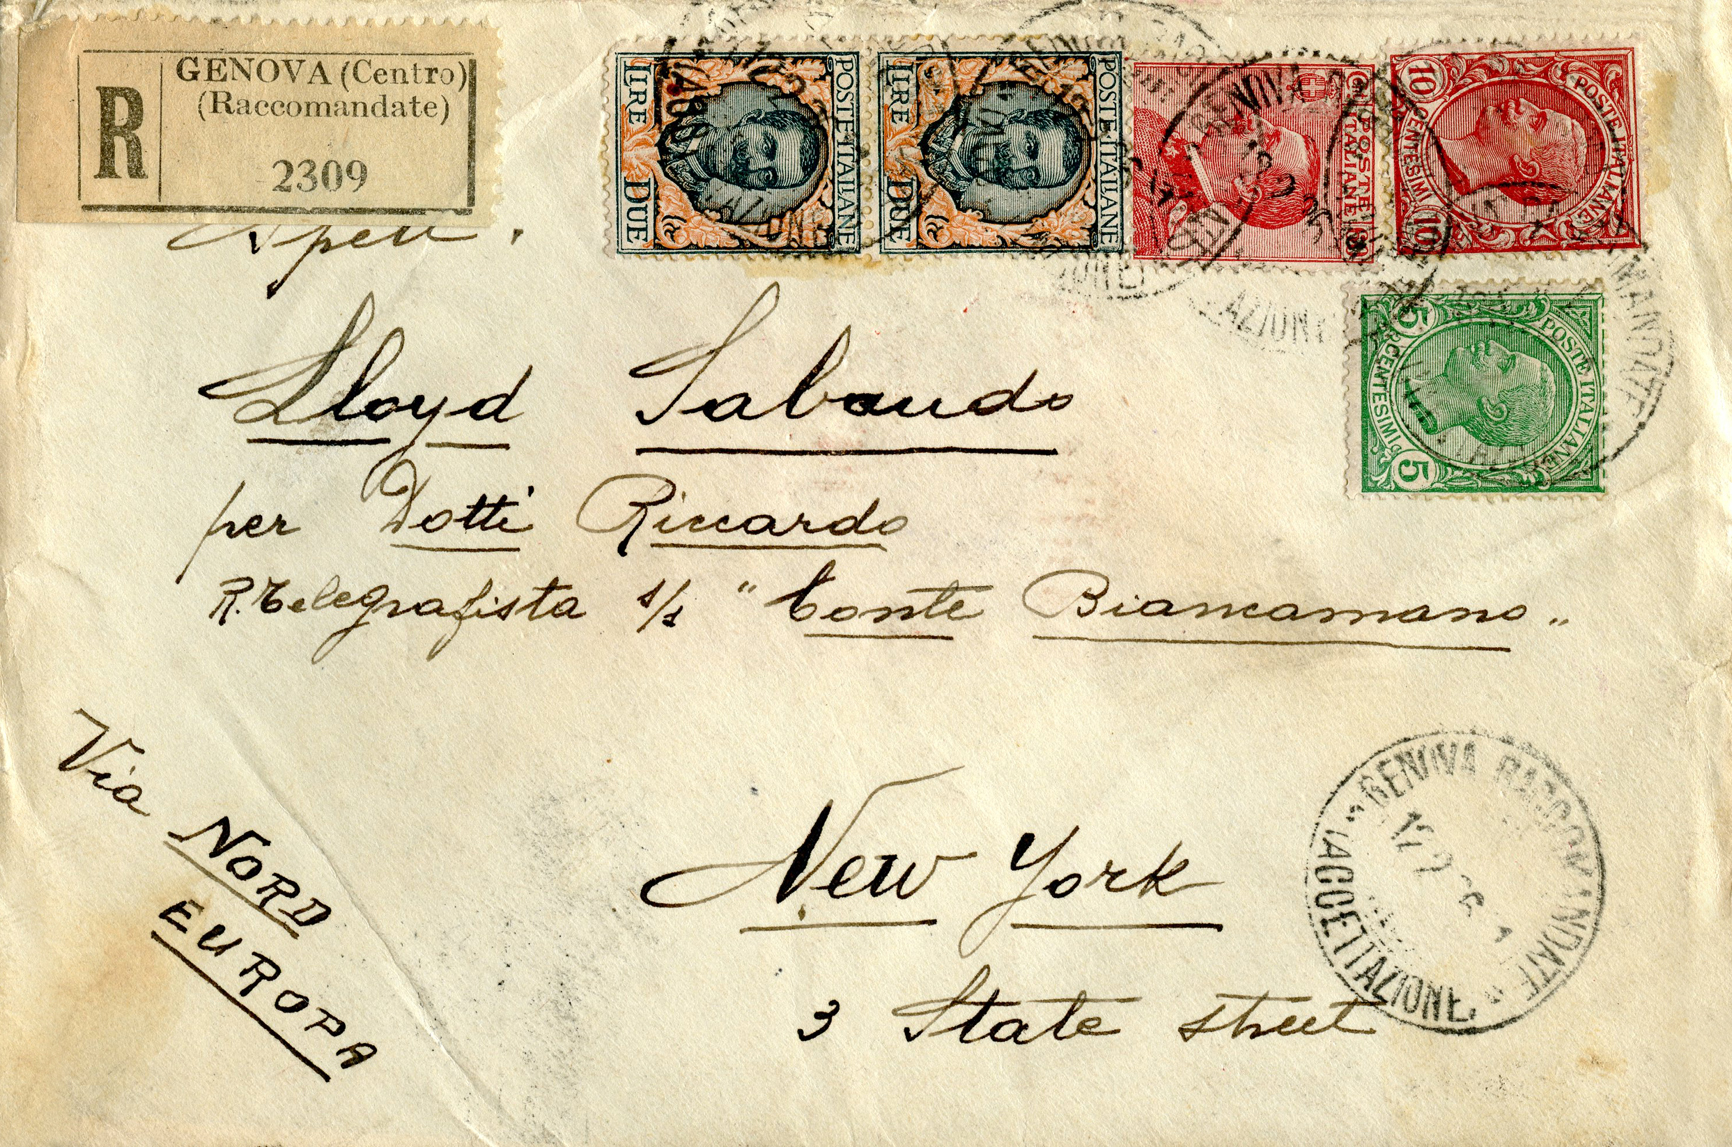 R
GENOVA (Centro)
(Raccomandate)
2309
POSTE ITALIANE
LIRE DUE
POSTE ITALIANE
LIRE DUE
POSTE ITALIANE
POSTE ITALIANE
10 CENTESIMI 10
POSTE ITALIANE
5 CENTESIMI 5
Spett.
Lloyd Sabaudo
per Dotti Riccardo
R. Telegrafista s/s "Conte Biancamano"
Via NORD
EUROPA
New York
3 State street
GENOVA RACCOMANDATE
(ACCETTAZIONE)